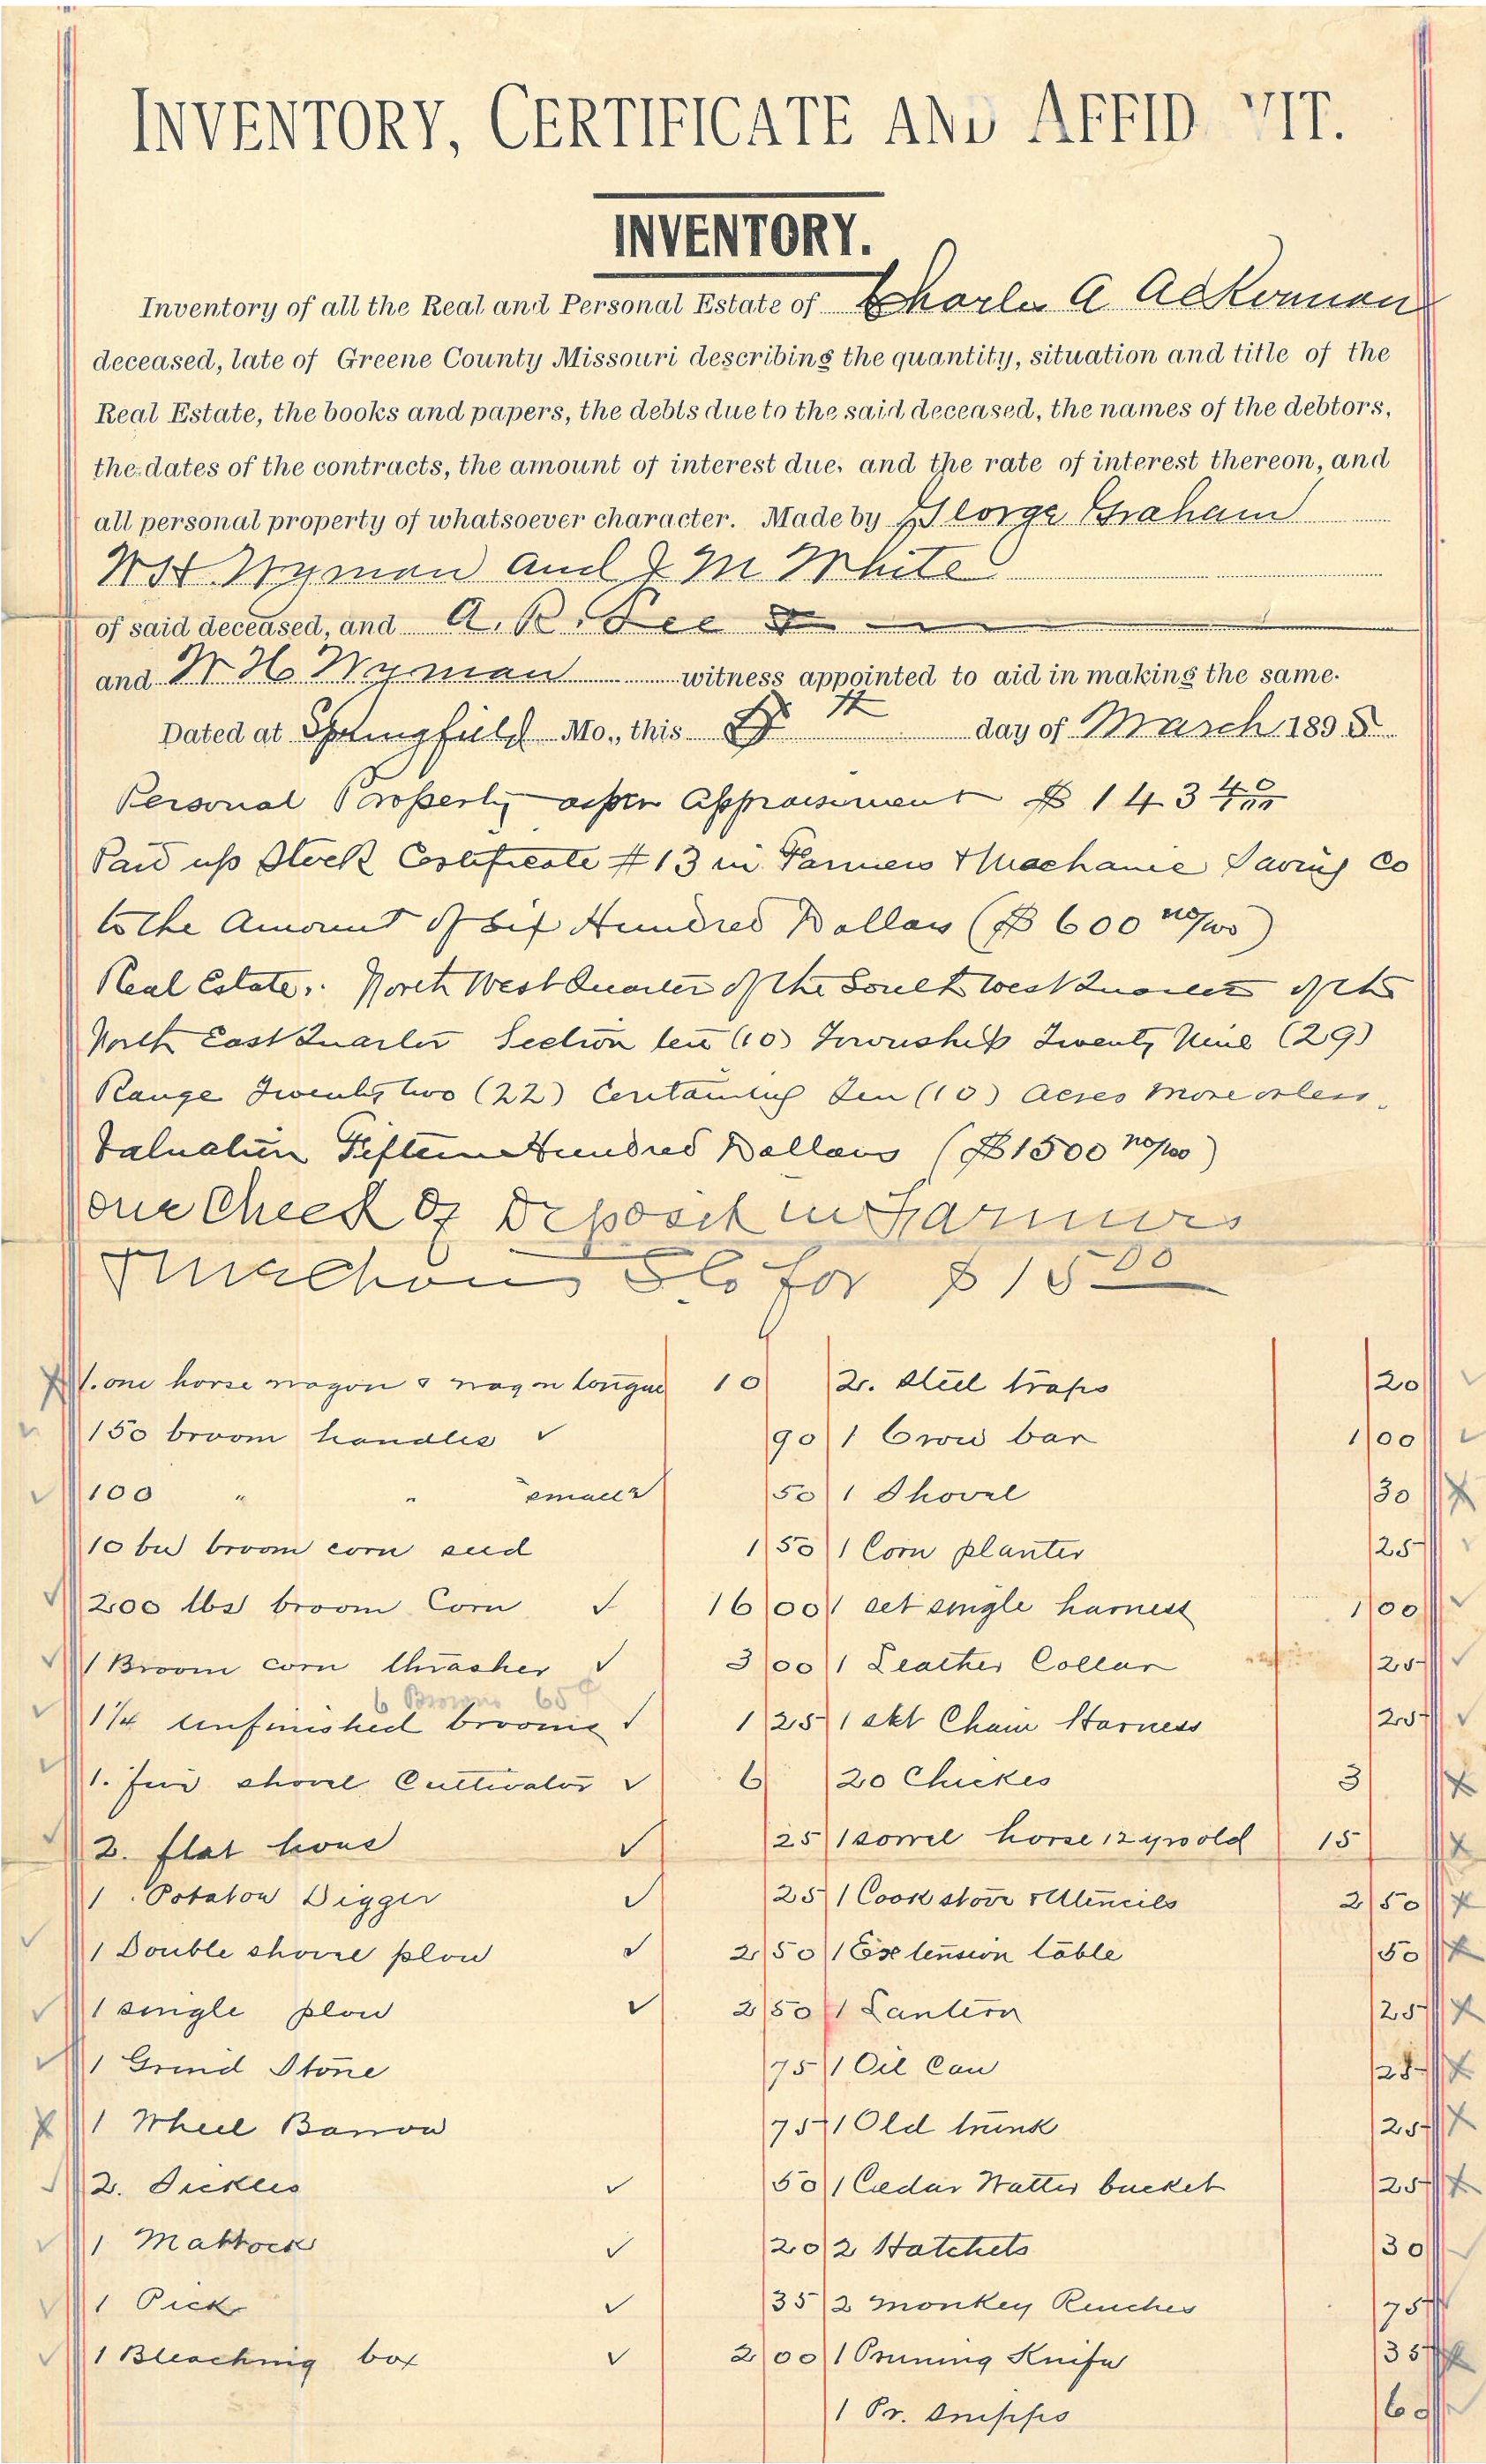 INVENTORY, CERTIFICATE AND AFFID VIT.
INVENTORY.
Inventory of all the Real and Personal Estate of Charles A Ackerman
deceased, late of Greene County Missouri describing the quantity, situation and title of the
Real Estate, the books and papers, the debts due to the said deceased, the names of the debtors,
the dates of the contracts, the amount of interest due, and the rate of interest thereon, and
all personal property of whatsoever character. Made by George Graham
W H Wyman and J M White
of said deceased, and A. R. Lee
and W H Wyman witness appointed to aid in making the same.
Dated at Springfield Mo., this day of March 1895
Personal Property as per Appraisement $ 143 40/100
Paid up Stock Certificate #13 in Farmers & Mechanic Saving Co
to the Amount of Six Hundred Dollars ($ 600 no/100)
Real Estate. North West Quarter of the South West Quarter of the
North East Quarter Section ten (10) Township Twenty Nine (29)
Range Twenty two (22) Containing Ten (10) Acres More or less.
Valuation Fifteen Hundred Dollars ($1500 no/100)
one Check of Deposit in Farmers
for $15 00
1. one horse wagon & wagon tongue 10
2. steel traps 20
150 broom handles 90
1 Crow bar 1 00
100 " " small 50
1 Shovel 30
10 bu broom corn seed 1 50
1 Corn planter 25
200 lbs broom Corn 16 00
1 set single harness 1 00
1 Broom corn thrasher 3 00
1 Leather Collar 25
6 Brooms 65¢
1 1/4 unfinished brooms 1 25
1 skt Chain Harness 25
1. five shovel Cultivator 6
20 Chickes 3
2. flat hoes 25
1 sorrel horse 12 yrs old 15
1 Potatow Digger 25
1 Cook stove & Utencils 2 50
1 Double shovel plow 2 50
1 Extension table 50
1 single plow 2 50
1 Lantern 25
1 Grind Stone 75
1 Oil Can 25
1 Wheel Barrow 75
1 Old trunk 25
2. Sickles 50
1 Cedar Watter bucket 25
1 Mattock 20
2 Hatchets 30
1 Pick 35
2 Monkey Renches 75
1 Bleaching box 2 00
1 Pruning Knife 35
1 Pr. snipps 60